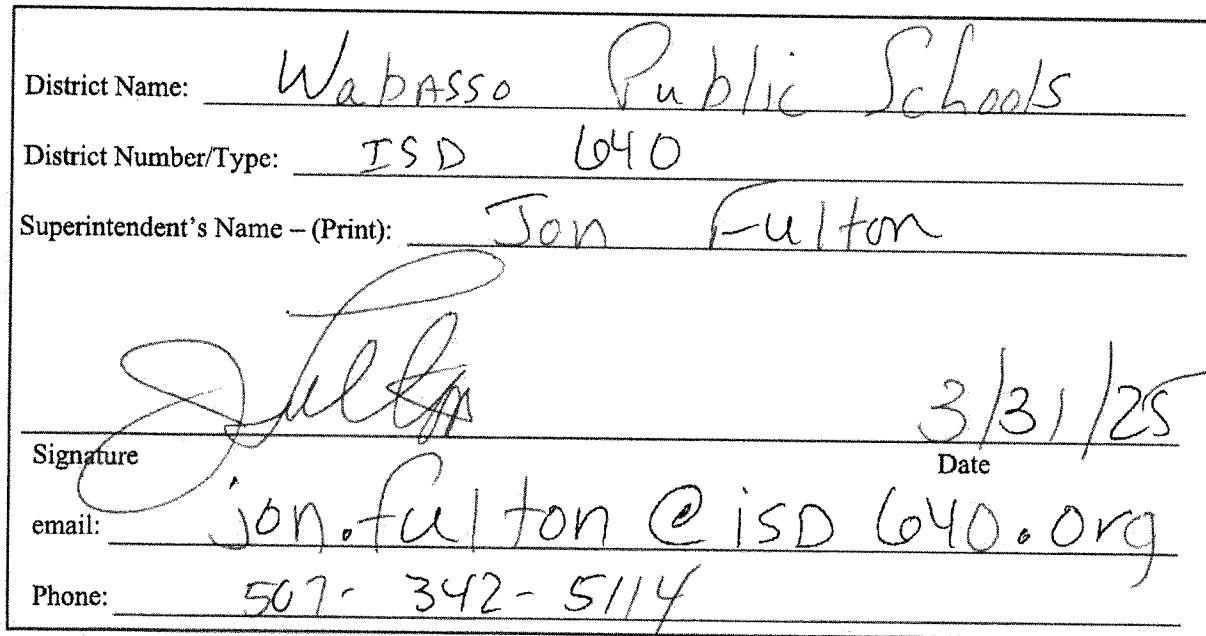 District Name: Wabasso Public Schools
District Number/Type: ISD 640
Superintendent's Name – (Print): Jon Fulton
JFulton 3/31/25
Signature Date
email: jon.fulton@isD640.org
Phone: 507-342-5114